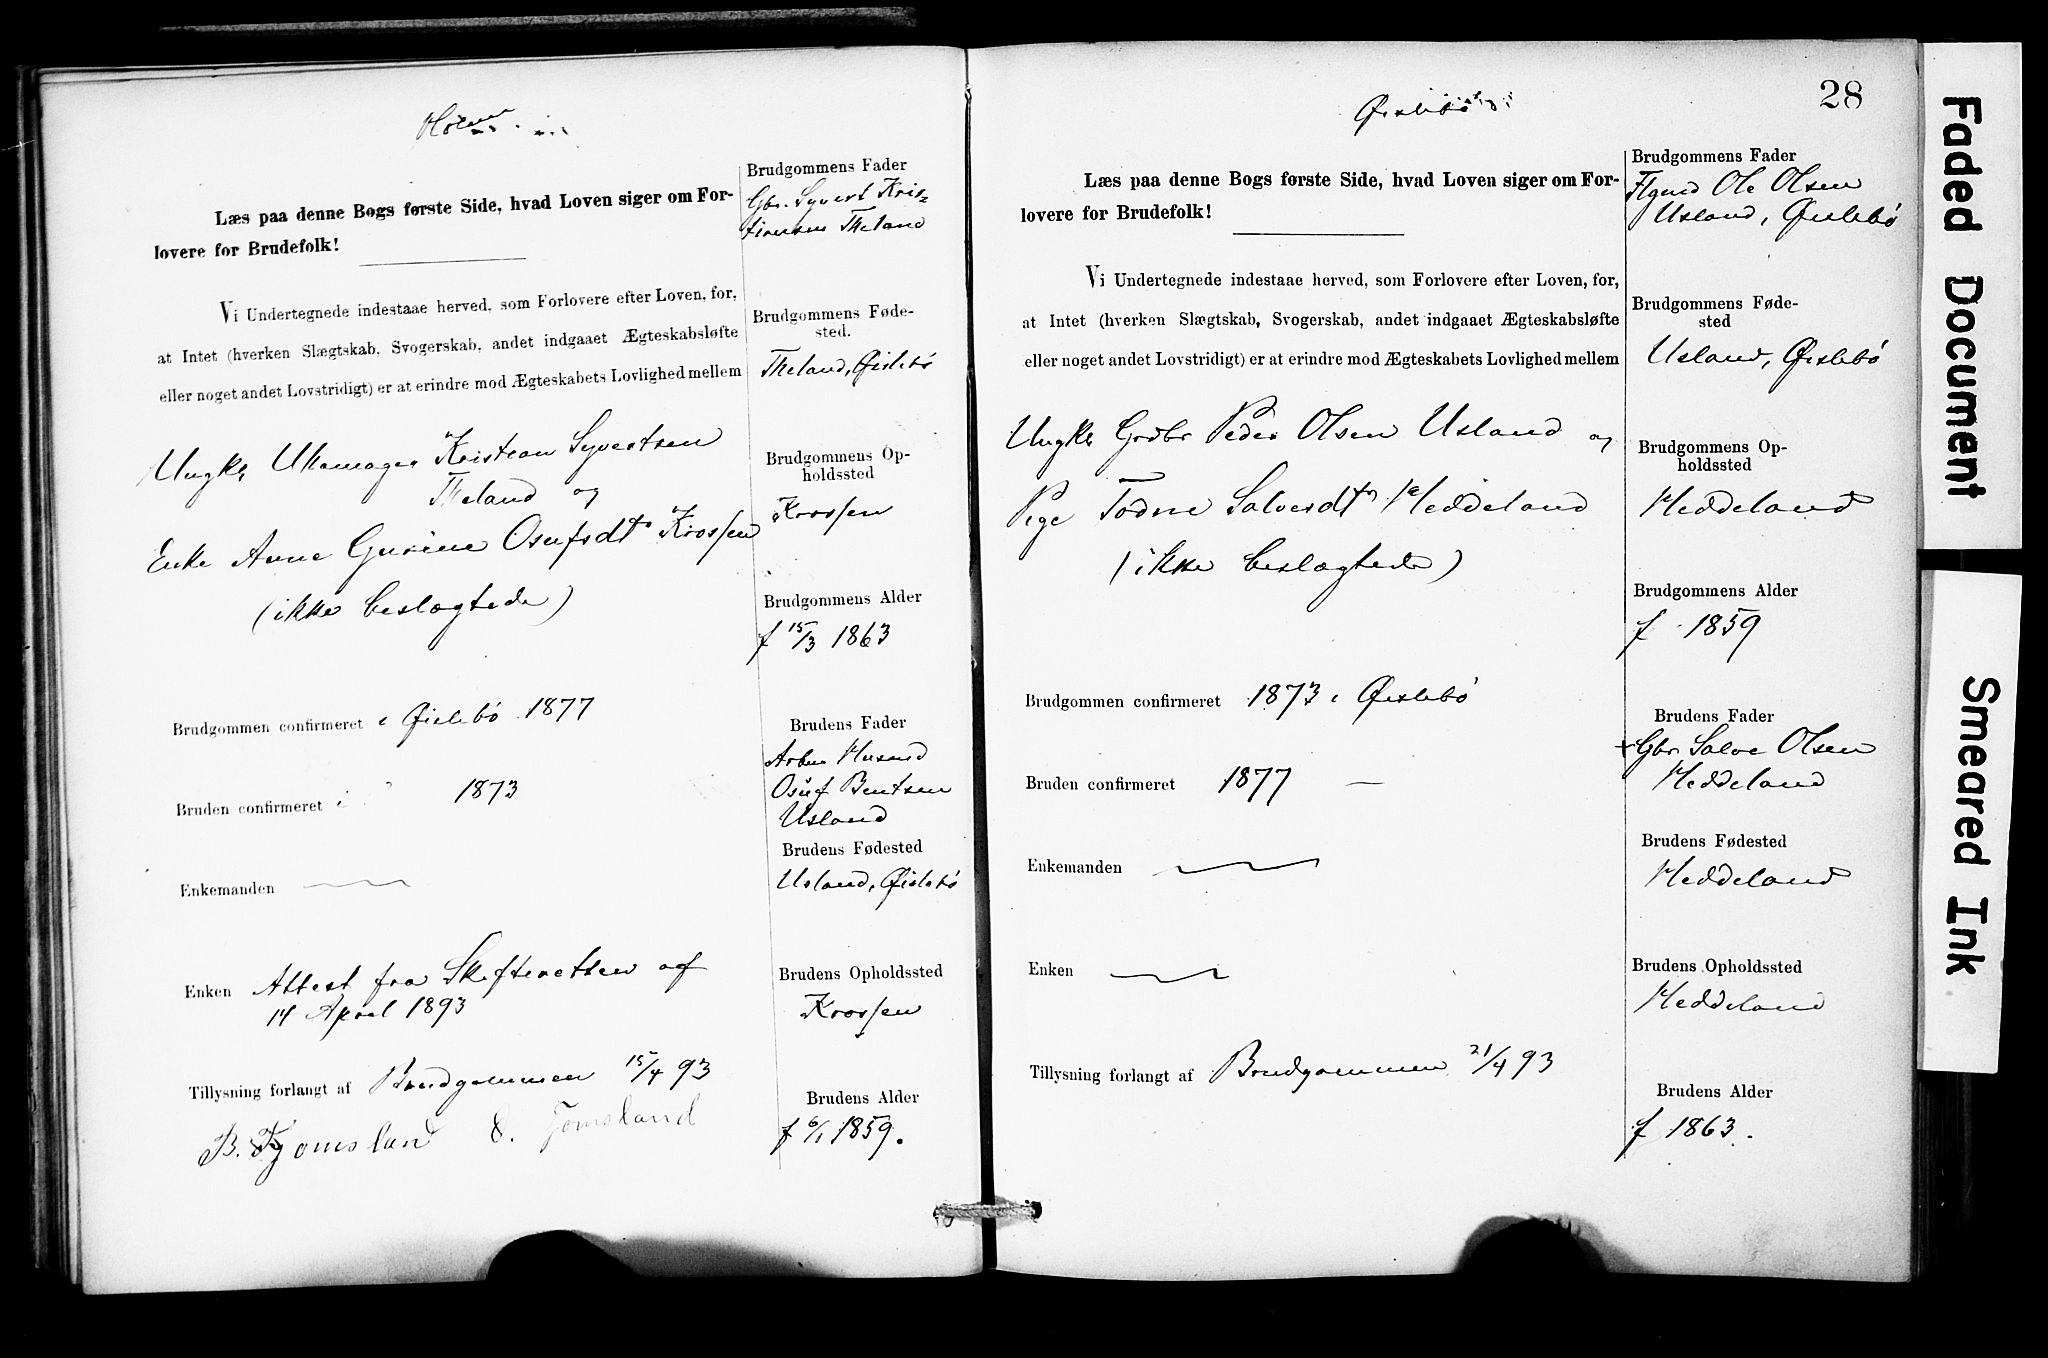 Holum
Læs paa denne Bogs første Side, hvad Loven siger om For-
lovere for Brudefolk!
Vi Undertegnede indestaae herved, som Forlovere efter Loven, for,
at Intet (hverken Slægtskab, Svogerskab, andet indgaaet Ægteskabsløfte
eller noget andet Lovstridigt) er at erindre mod Ægteskabets Lovlighed mellem
Ungk. Uhrmager Kristian Syvertsen
Theland og
Enke Anne Gurine Osufsdtr Krossen
(ikke beslægtede)
Brudgommen confirmeret i Øislebø 1877
Bruden confirmeret i " 1873
Enkemanden
Enken Attest fra Skifteretten af
14 April 1893
Tillysning forlangt af Brudgommen 15/4 93
B. Tjomsland O. Tomsland
Brudgommens Fader
Gbr. Syvert Kris-
tiansen Theland
Brudgommens Føde-
sted.
Theland, Øislebø
Brudgommens Op-
holdssted
Krossen
Brudgommens Alder
f 15/3 1863
Brudens Fader
Arb. Husmd
Osuf Bentsen
Usland
Brudens Fødested
Usland, Øislebø
Brudens Opholdssted
Krossen
Brudens Alder
f 6/1 1859.
Øislebø
28
Læs paa denne Bogs første Side, hvad Loven siger om For-
lovere for Brudefolk!
Vi Undertegnede indestaae herved, som Forlovere efter Loven, for,
at Intet (hverken Slægtskab, Svogerskab, andet indgaaet Ægteskabsløfte
eller noget andet Lovstridigt) er at erindre mod Ægteskabets Lovlighed mellem
Ungk. Grdbr Peder Olsen Usland og
Pige Todne Salvesdtr Heddeland
(ikke beslægtede)
Brudgommen confirmeret 1873 i Øislebø
Bruden confirmeret 1877 —
Enkemanden
Enken
Tillysning forlangt af Brudgommen 21/4 93
Brudgommens Fader
Ole Olsen
Usland, Øislebø
Brudgommens Føde-
sted
Usland, Øislebø
Brudgommens Op-
holdssted
Heddeland
Brudgommens Alder
f 1859
Brudens Fader
+ Gbr Salve Olsen
Heddeland
Brudens Fødested
Heddeland
Brudens Opholdssted
Heddeland
Brudens Alder
f 1863.
Faded Document
Smeared Ink